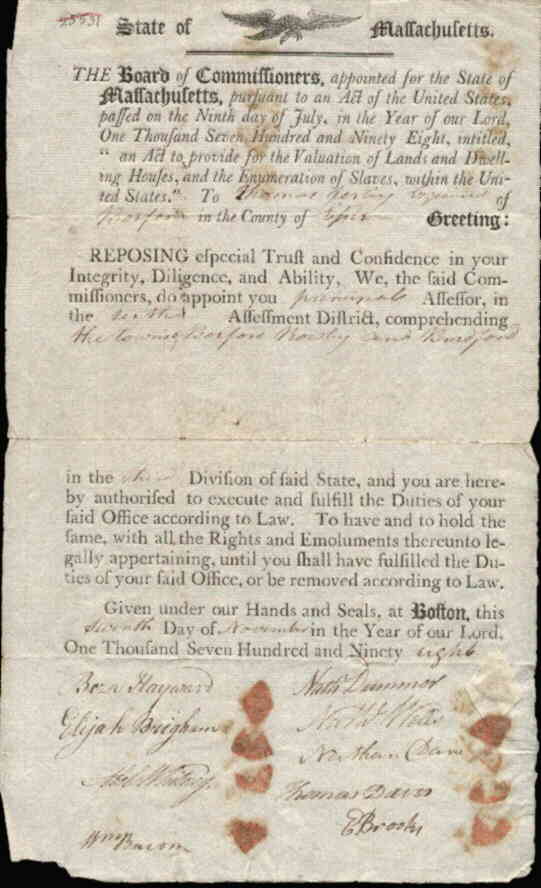 25531
State of Massachusetts.
THE Board of Commissioners, appointed for the State of
Massachusetts, pursuant to an Act of the United States,
passed on the Ninth day of July, in the Year of our Lord,
One Thousand Seven Hundred and Ninety Eight, intitled,
" an Act to provide for the Valuation of Lands and Dwell-
ing Houses, and the Enumeration of Slaves, within the Uni-
ted States." To Thomas of
Boxford in the County of Essex Greeting:
REPOSING especial Trust and Confidence in your
Integrity, Diligence, and Ability, We, the said Com-
missioners, do appoint you principal Assessor, in
the Assessment District, comprehending
the towns Boxford Rowley and Bradford
in the Division of said State, and you are here-
by authorised to execute and fulfill the Duties of your
said Office according to Law. To have and to hold the
same, with all the Rights and Emoluments thereunto le-
gally appertaining, until you shall have fulfilled the Du-
ties of your said Office, or be removed according to Law.
Given under our Hands and Seals, at Boston, this
Seventh Day of November in the Year of our Lord,
One Thousand Seven Hundred and Ninety eight
Beza Hayward Nathl Dummer
Elijah Brigham Nathl Wells
Nathan Dane
Thomas Davis
Wm Bacon E Brooks